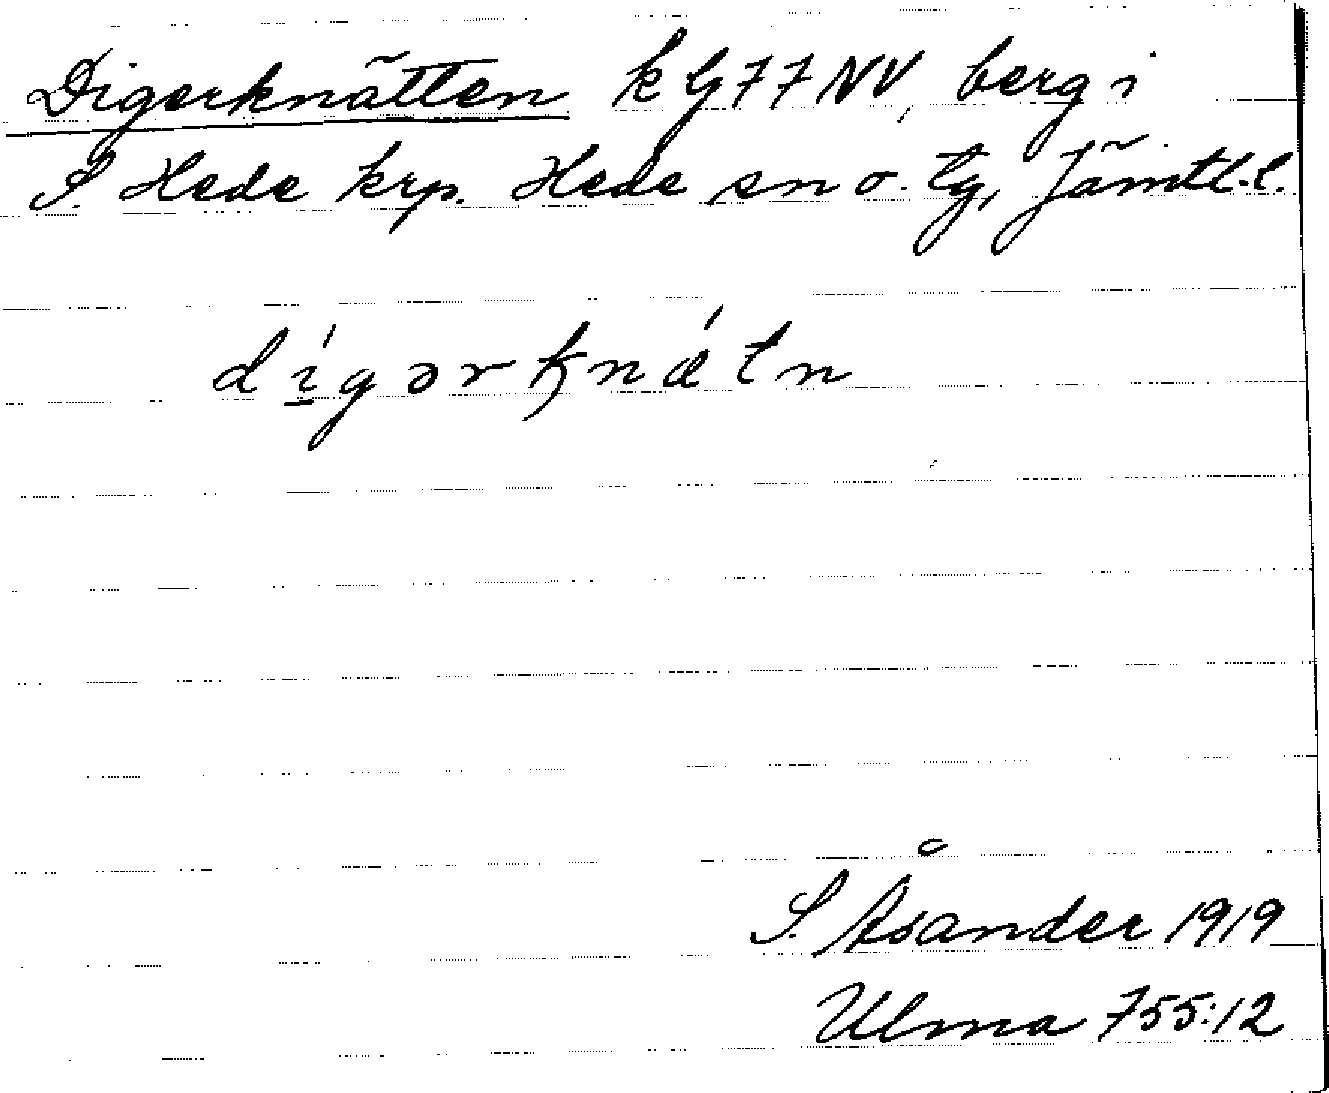 Digerknätten k G77NV, berg i
S. Hede krp. Hede sn o. tg, Jämtl.l.
dígərknátn
S. Åsander 1919
Ulma 755:12